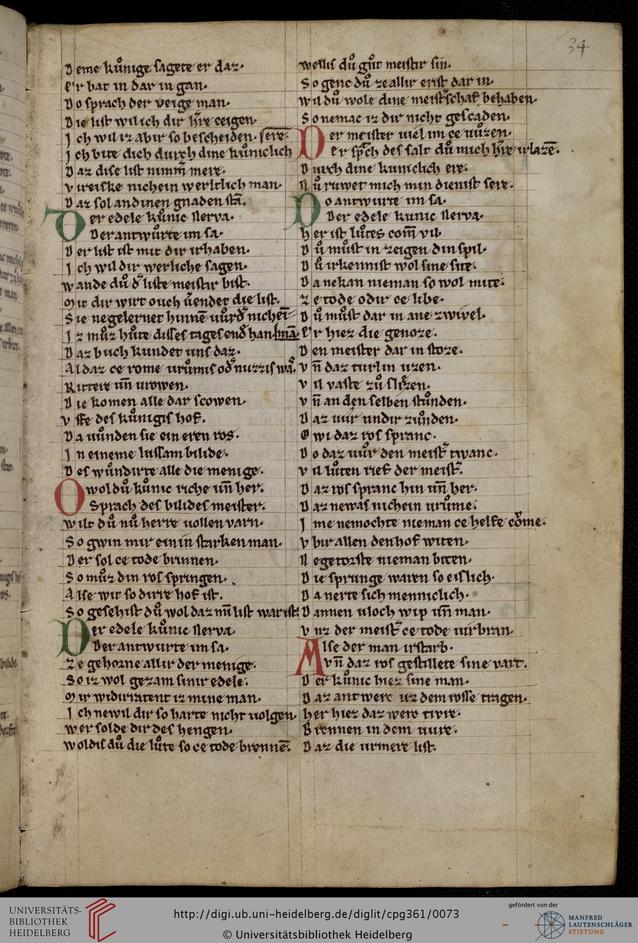 34
Deme kůnige sagete er daz.
Er bat in dar in gan.
Do sprach der veige man.
Die list wil ich dir h're ceigen.
Ich wil iz abir so bescheiden. sere.
Ich bite dich durch dine kůniclich
Daz dise list nimm̄ mere.
Vreiske nichein werltlich man.
Daz sol an dinen gnaden stā.
Der edele kunic Nerva.
Der antwůrte im sa.
Der list ist mit dir irhaben.
Ich wil dir werliche sagen.
Wande du d' liste meistir bist.
Mit dir wirt ouch v̊endet die list.
Sie negelernet hinne vůrd' nichei
Iz můz hůte disses tages end' han. mā
Daz bůch kundet uns daz.
Al daz ce rome vrůmis od' nuzzis wa'.
Rittere vn̄ vrowen.
Die komen alle dar scowen.
Vffe des kůnigis hof.
Da vůnden sie ein eren ros.
In eineme lussam bilide.
Des wůndirte alle die menige.
O wol dů kůnic riche vn̄ her.
Sprach des bilides meister.
Wilt dů nů herre vollen varn.
So gwin mir ein in starken man.
Der sol ce tode brinnen.
So můz din ros springen.
Alse wit so dirre hof ist.
So gesehist dů wol daz mī list war ist.
Der edele kůnic Nerva.
Der antwurte im sa.
Ze gehorne allir der menige.
So iz wol gezam sinir edele.
Mir widiriatent iz mine man.
Ich newil dir so harte nicht volgen.
Wer solde dir des hengen.
Woldis dů die lůte so ce tode brennē.
Wellis dů gůt meistir sin.
So genc dů ze allir erist dar in.
Wil dů wole dine meist'schaf behaben.
So nemac iz dir nicht gescaden.
Der meister viel im ce vůzen.
Er sp'ch des salt dů mich h're irlazē.
Durch dine kuniclich ere.
Nů ruwet mich min dienist sere.
Do antwurte im sa.
Der edele kunic Nerva.
Her ist lůtes com̄ vil.
Dů můst in zeigen din spil.
Dů irkennist wol sine site.
Da nekan nieman so wol mite.
Ze tode odir ce libe.
Dů můst dar in ane zwivel.
Er hiez die genoze.
Den meister dar in stoze.
Vn̄ daz turlin uzen.
Vil vaste zů slizen.
Vn̄ an den selben stůnden.
Daz vůr undir zůnden.
Owi daz ros spranc.
Do daz vůr den meist' twanc.
Vil lůten rief der meist'.
Daz ros spranc hin vn̄ her.
Daz newas nichein vrůme.
Ime nemochte nieman ce helfe cōme.
Vbir allen den hof witen.
Negetorste nieman biten.
Die sprunge waren so eislich.
Da nerte sich menniclich.
Dannen vloch wip vn̄ man.
Vnz der meist' ce tode virbran.
Alse der man irstarb.
Vn̄ daz ros gestillete sine vart.
Der kůnic hiez sine man.
Daz antwerc uz dem rosse tragen.
Her hiez daz werc tvre.
Brennen in dem vure.
Daz die vrmere list.
UNIVERSITÄTS-
BIBLIOTHEK
HEIDELBERG
http://digi.ub.uni-heidelberg.de/diglit/cpg361/0073
© Universitätsbibliothek Heidelberg
gefördert von der
MANFRED
LAUTENSCHLÄGER
STIFTUNG